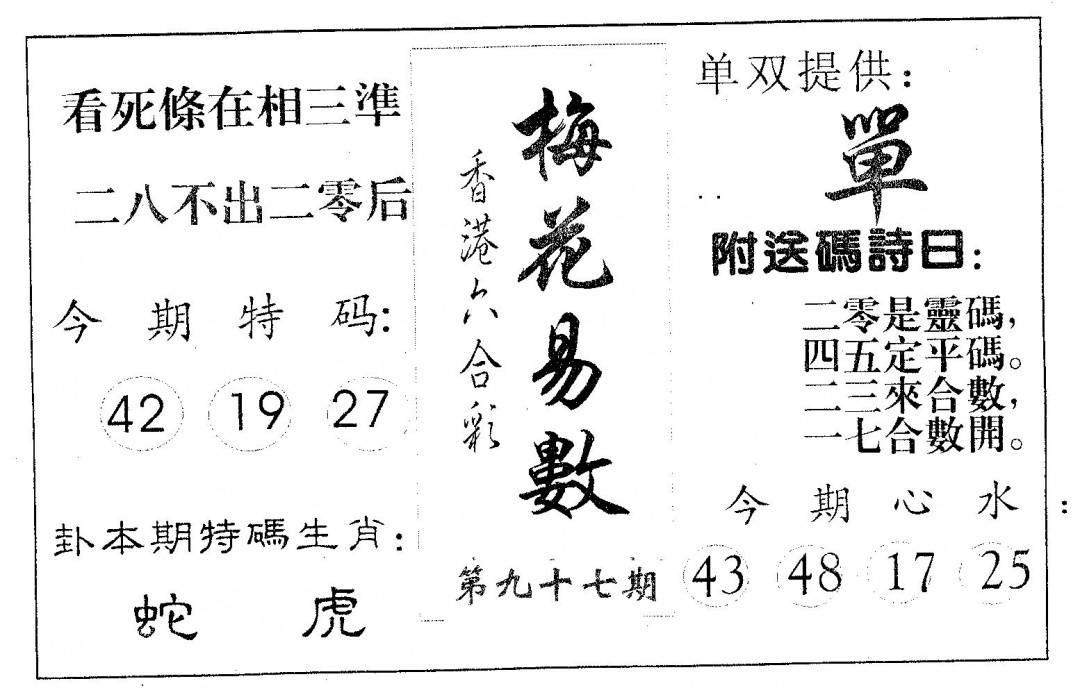 看死條在相三準
二八不出二零后
今期特码:
42 19 27
卦本期特碼生肖:
蛇 虎
香港六合彩
梅花易數
第九十七期
单双提供:
單
附送碼詩曰:
二零是靈碼,
四五定平碼。
二三來合數,
一七合數開。
今期心水:
43 48 17 25